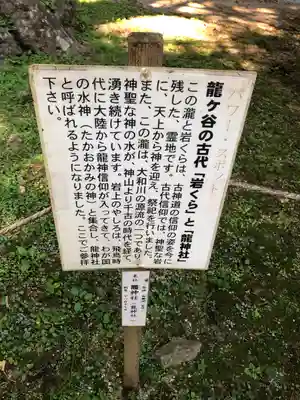 パワースポット
龍ヶ谷の古代「岩くら」と「龍神社」
この瀧と岩くらは、古神道の信仰の姿を今に
残した、霊地です。古代信仰では、神聖な岩
に、天上から神を迎え、祭祀を行いました。
また、この瀧は、大和川の源流の一つであり、
神聖な神の水が、神山より千古の時代を経て
湧き続けています。岩上のやしろは、飛鳥時
代に大陸から龍神信仰が入ってきて、わが国
の水神（たかおかみの神）と集合し、龍神社
と呼ばれるようになりました。ここでご参拝
下さい。
龍神社